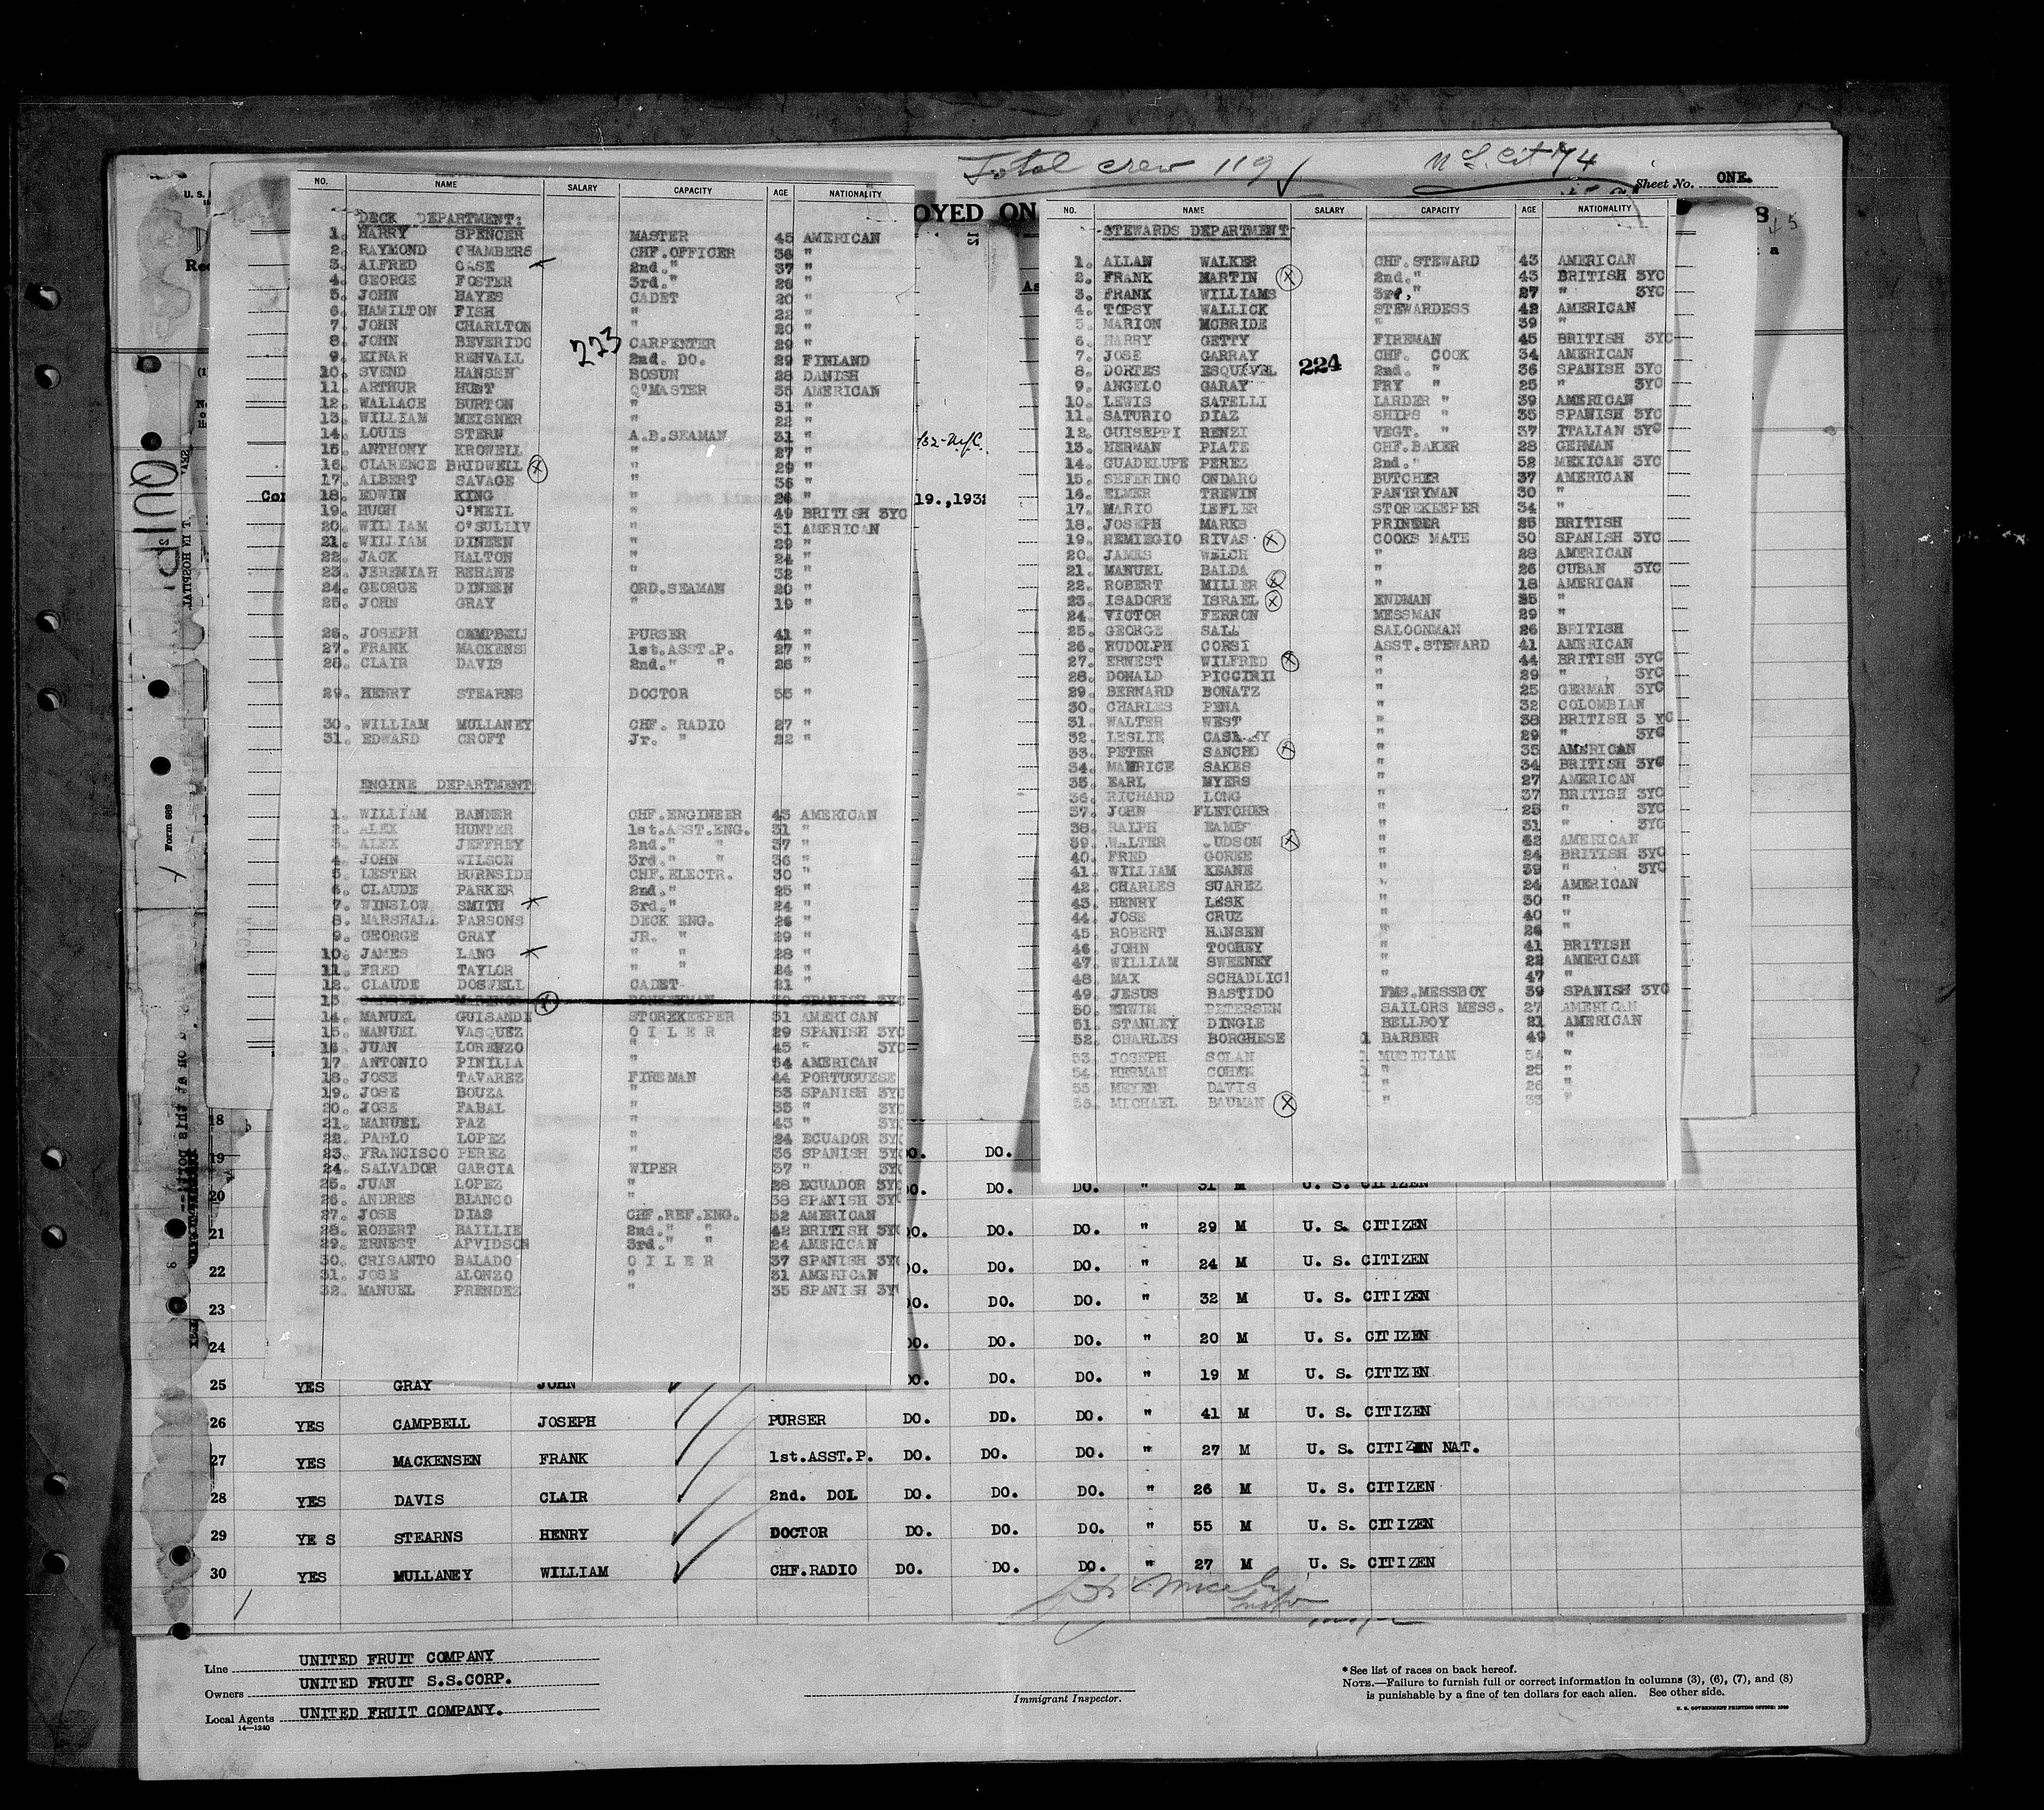 Total crew 119
U.S. Cit 74
Sheet No. ONE.
OYED ON
NO. NAME SALARY CAPACITY AGE NATIONALITY
DECK DEPARTMENT:
1. HARRY SPENCER MASTER 45 AMERICAN
2. RAYMOND CHAMBERS CHF.OFFICER 36 "
3. ALFRED CASE 2nd." 37 "
4. GEORGE FOSTER 3rd." 26 "
5. JOHN HAYES CADET 20 "
6. HAMILTON FISH " 22 "
7. JOHN CHARLTON " 20 "
8. JOHN BEVERIDG CARPENTER 29 "
223
9. EINAR RENVALL 2nd. DO. 29 FINLAND
10. SVEND HANSEN BOSUN 28 DANISH
11. ARTHUR HUNT Q'MASTER 35 AMERICAN
12. WALLACE BURTON " 31 "
13. WILLIAM MEISNER " 22 "
14. LOUIS STERN A.B.SEAMAN 31 "
15. ANTHONY KROWELL " 27 "
16. CLARENCE BRIDWELL " 29 "
17. ALBERT SAVAGE " 36 "
18. EDWIN KING " 26 "
19. HUGH O'NEIL " 49 BRITISH 3YC
20. WILLIAM O'SULLIV " 31 AMERICAN
21. WILLIAM DINEEN " 29 "
22. JACK HALTON " 24 "
23. JEREMIAH BEHANE " 32 "
24. GEORGE DINEEN ORD.SEAMAN 20 "
25. JOHN GRAY " 19 "
26. JOSEPH CAMPBEL PURSER 41 "
27. FRANK MACKENS 1st.ASST.P. 27 "
28. CLAIR DAVIS 2nd." " 26 "
29. HENRY STEARNS DOCTOR 55 "
30. WILLIAM MULLANEY CHF. RADIO 27 "
31. EDWARD CROFT Jr. " 22 "
ENGINE DEPARTMENT
1. WILLIAM BANNER CHF.ENGINEER 43 AMERICAN
2. ALEX HUNTER 1st.ASST.ENG. 31 "
3. ALEX JEFFREY 2nd." " 37 "
4. JOHN WILSON 3rd." " 36 "
5. LESTER BURNSIDE CHF.ELECTR. 30 "
6. CLAUDE PARKER 2nd." 25 "
7. WINSLOW SMITH 3rd." 24 "
8. MARSHALL PARSONS DECK ENG. 26 "
9. GEORGE GRAY JR. " 29 "
10. JAMES LANG " " 28 "
11. FRED TAYLOR " " 24 "
12. CLAUDE DOSWELL CADET 21 "
13 DONKEYMAN SPANISH 3YC
14. MANUEL GUISANDE STOREKEEPER 31 AMERICAN
15. MANUEL VASQUEZ O I L E R 29 SPANISH 3YC
16. JUAN LORENZO " 45 " 3YC
17. ANTONIO PINILIA " 54 AMERICAN
18. JOSE TAVAREZ FIREMAN 44 PORTUGUESE
19. JOSE BOUZA " 53 SPANISH 3YC
20. JOSE FABAL " 35 " 3YC
21. MANUEL PAZ " 43 " 3YC
22. PABLO LOPEZ " 24 ECUADOR 3YC
23. FRANCISCO PEREZ " 36 SPANISH 3YC
24. SALVADOR GARCIA WIPER 37 " 3YC
25. JUAN LOPEZ " 28 ECUADOR 3YC
26. ANDRES BLANCO " 38 SPANISH 3YC
27. JOSE DIAS CHF.REF.ENG. 52 AMERICAN
28. ROBERT BAILLIE 2nd." " 42 BRITISH 3YC
29. ERNEST AFVIDSON 3rd." " 24 AMERICAN
30. CRISANTO BALADO O I L E R 37 SPANISH 3YC
31. JOSE ALONZO " 31 AMERICAN
32. MANUEL PRENDEZ " 35 SPANISH 3Y
NO. NAME SALARY CAPACITY AGE NATIONALITY
STEWARDS DEPARTMENT
1. ALLAN WALKER CHF.STEWARD 43 AMERICAN
2. FRANK MARTIN 2nd." 43 BRITISH 3YC
3. FRANK WILLIAMS 3rd," 27 " 3YC
4. TOPSY WALLICK STEWARDESS 42 AMERICAN
5. MARION MCBRIDE " 39 "
6. HARRY GETTY FIREMAN 45 BRITISH 3YC
7. JOSE GARRAY CHF. COOK 34 AMERICAN
224
8. DORTES ESQUIVEL 2nd. " 36 SPANISH 3YC
9. ANGELO GARAY FRY " 25 " 3YC
10. LEWIS SATELLI LARDER " 39 AMERICAN
11. SATURIO DIAZ SHIPS " 35 SPANISH 3YC
12. GUISEPPI RENZI VEGT. " 37 ITALIAN 3YC
13. HERMAN PLATE CHF.BAKER 28 GERMAN
14. GUADELUPE PEREZ 2nd." 52 MEXICAN 3YC
15. SEFERINO ONDARO BUTCHER 37 AMERICAN
16. ELMER TREWIN PANTRYMAN 30 "
17. MARIO LEFLER STOREKEEPER 34 "
18. JOSEPH MARKS PRINTER 25 BRITISH
19. REMIEGIO RIVAS COOKS MATE 30 SPANISH 3YC
20. JAMES WELCH " 28 AMERICAN
21. MANUEL BALDA " 26 CUBAN 3YC
22. ROBERT MILLER " 18 AMERICAN
23. ISADORE ISRAEL ENDMAN 35 "
24. VICTOR FERRON MESSMAN 29 "
25. GEORGE SALL SALOONMAN 26 BRITISH
26. RUDOLPH CORSI ASST.STEWARD 41 AMERICAN
27. ERNEST WILFRED " 44 BRITISH 3YC
28. DONALD PICCIRII " 29 " 3YC
29. BERNARD BONATZ " 25 GERMAN 3YC
30. CHARLES PENA " 32 COLOMBIAN
31. WALTER WEST " 38 BRITISH 3 YC
32. LESLIE " 29 " 3YC
33. PETER SANCHO " 35 AMERICAN
34. MAURICE SAKES " 34 BRITISH 3YC
35. EARL MYERS " 27 AMERICAN
36. RICHARD LONG " 37 BRITISH 3YC
37. JOHN FLETCHER " 25 " 3YC
38. RALPH EAMES " 31 " 3YC
39. WALTER JUDSON " 42 AMERICAN
40. FRED GOREE " 24 BRITISH 3YC
41. WILLIAM KEANE " 39 " 3YC
42. CHARLES SUAREZ " 24 AMERICAN
43. HENRY LESK " 30 "
44. JOSE CRUZ " 40 "
45. ROBERT HANSEN " 26 "
46. JOHN TOOHEY " 41 BRITISH
47. WILLIAM SWEENEY " 22 AMERICAN
48. MAX SCHADLIC " 47 "
49. JESUS BASTIDO FMS.MESSBOY 39 SPANISH 3YC
50. ERWIN PETERSEN SAILORS MESS. 27 AMERICAN
51. STANLEY DINGLE BELLBOY 21 AMERICAN
52. CHARLES BORGHESE 1 BARBER 49 "
53. JOSEPH SOLAN 1 MUSICIAN 34 "
54. HERMAN COHEN 1 " 25 "
55. MEYER DAVIS 1 " 26 "
56. MICHAEL BAUMAN 1 " 33 "
19.,193
18
19 DO. DO.
20 DO. DO. DO. " 31 M U. S. CITIZEN
21 DO. DO. DO. " 29 M U. S. CITIZEN
22 DO. DO. DO. " 24 M U. S. CITIZEN
23 DO. DO. DO. " 32 M U. S. CITIZEN
24 DO. DO. DO. " 20 M U. S. CITIZEN
25 YES GRAY JOHN DO. DO. DO. " 19 M U. S. CITIZEN
26 YES CAMPBELL JOSEPH PURSER DO. DD. DO. " 41 M U. S. CITIZEN
27 YES MACKENSEN FRANK 1st.ASST.P. DO. DO. DO. " 27 M U. S. CITIZEN NAT.
28 YES DAVIS CLAIR 2nd. DOL DO. DO. DO. " 26 M U. S. CITIZEN
29 YE S STEARNS HENRY DOCTOR DO. DO. DO. " 55 M U. S. CITIZEN
30 YES MULLANEY WILLIAM CHF.RADIO DO. DO. DO. " 27 M U. S. CITIZEN
Form 689
QUIRI
Line UNITED FRUIT COMPANY
Owners UNITED FRUIT S.S.CORP.
Local Agents UNITED FRUIT COMPANY.
14—1240
Immigrant Inspector.
* See list of races on back hereof.
NOTE.—Failure to furnish full or correct information in columns (3), (6), (7), and (8)
is punishable by a fine of ten dollars for each alien. See other side.
U. S. GOVERNMENT PRINTING OFFICE: 1930